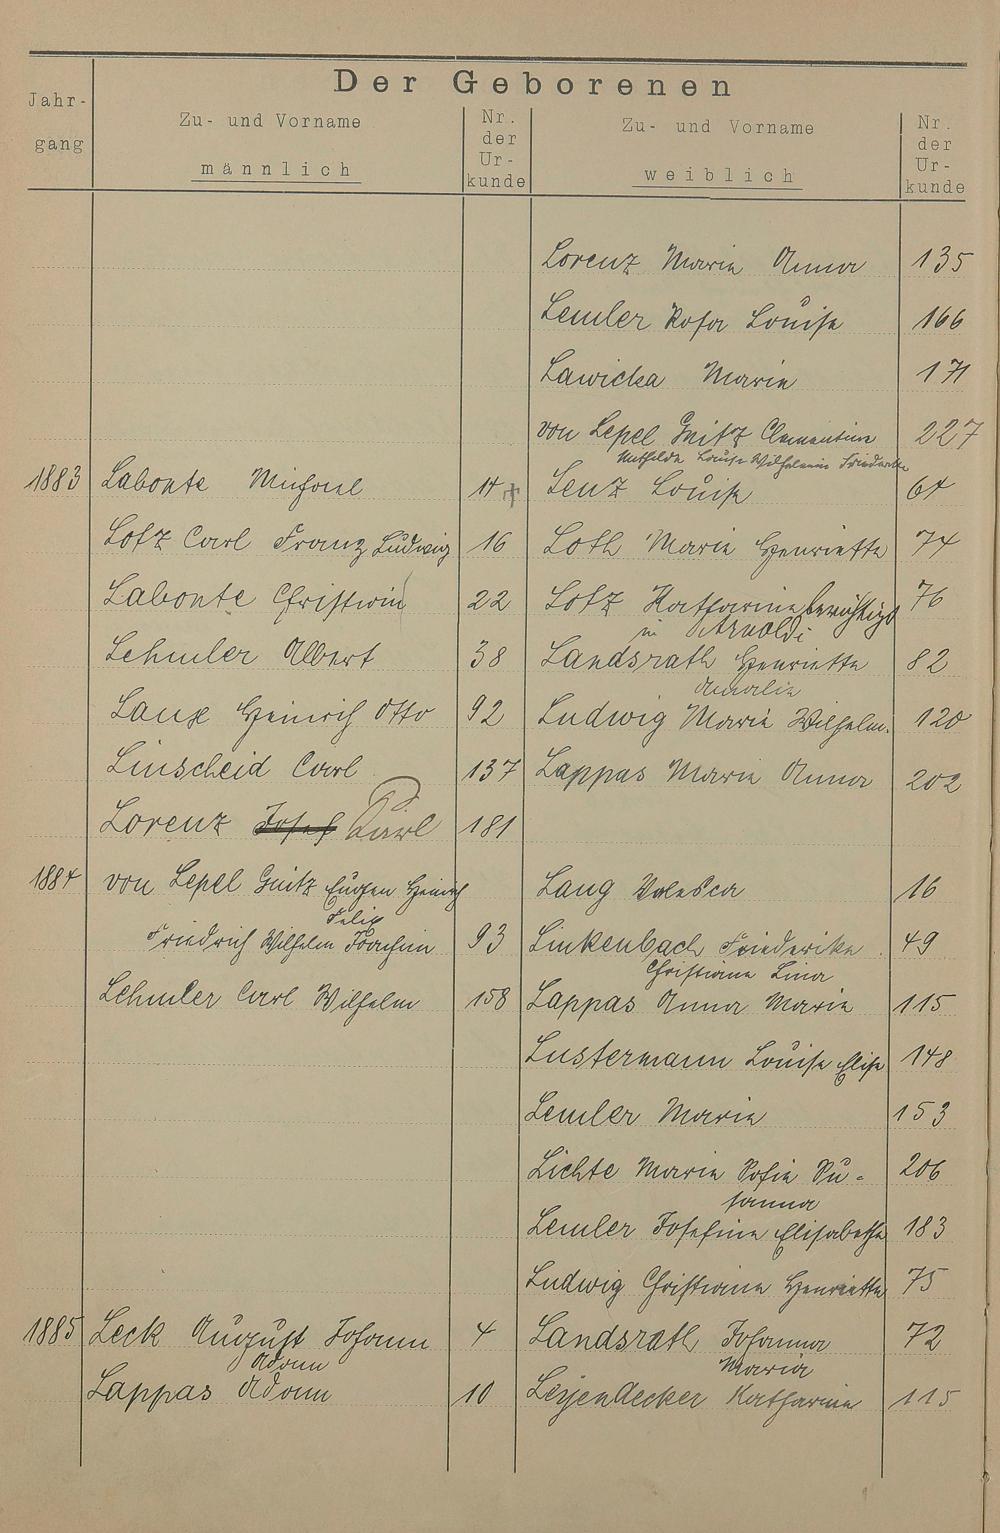 Der Geborenen
Jahr-
gang
Zu- und Vorname
männlich
Nr.
der
Ur-
kunde
Zu- und Vorname
weiblich
Nr.
der
Ur-
kunde
Lorenz Marie Anna 135
Lemler Rosa Louise 166
Lawicka Marie 171
von Lepel Gnitz Clementine 227
Mathilde Louise Wilhelmine Friederike
1883 Labonte Michael 14 Lenz Louise 64
Lotz Carl Franz Ludwig 16 Loth Marie Henriette 74
Labonte Christian 22 Lotz Katharine berichtigt 76
in Arnoldi
Lehmler Albert 38 Landsrath Henriette 82
Amalie
Laux Heinrich Otto 92 Ludwig Marie Wilhelm. 120
Linscheid Carl 137 Lappas Marie Anna 202
Lorenz Josef Karl 181
1884 von Lepel Gnitz Eugen Heinrich Lang Valesca 16
Felix
Friedrich Wilhelm Joachim 93 Linkenbach Friederike 49
Christiane Lina
Lehmler Carl Wilhelm 158 Lappas Anna Marie 115
Lustermann Louise Elise 148
Lemler Marie 153
Lichte Marie Sofie Su- 206
sanna
Lemler Josefine Elisabethe 183
Ludwig Christiane Henriette 75
1885 Leck August Johann 4 Landsrath Johanna 72
Adam Maria
Lappas Adam 10 Leyendecker Katharine 115